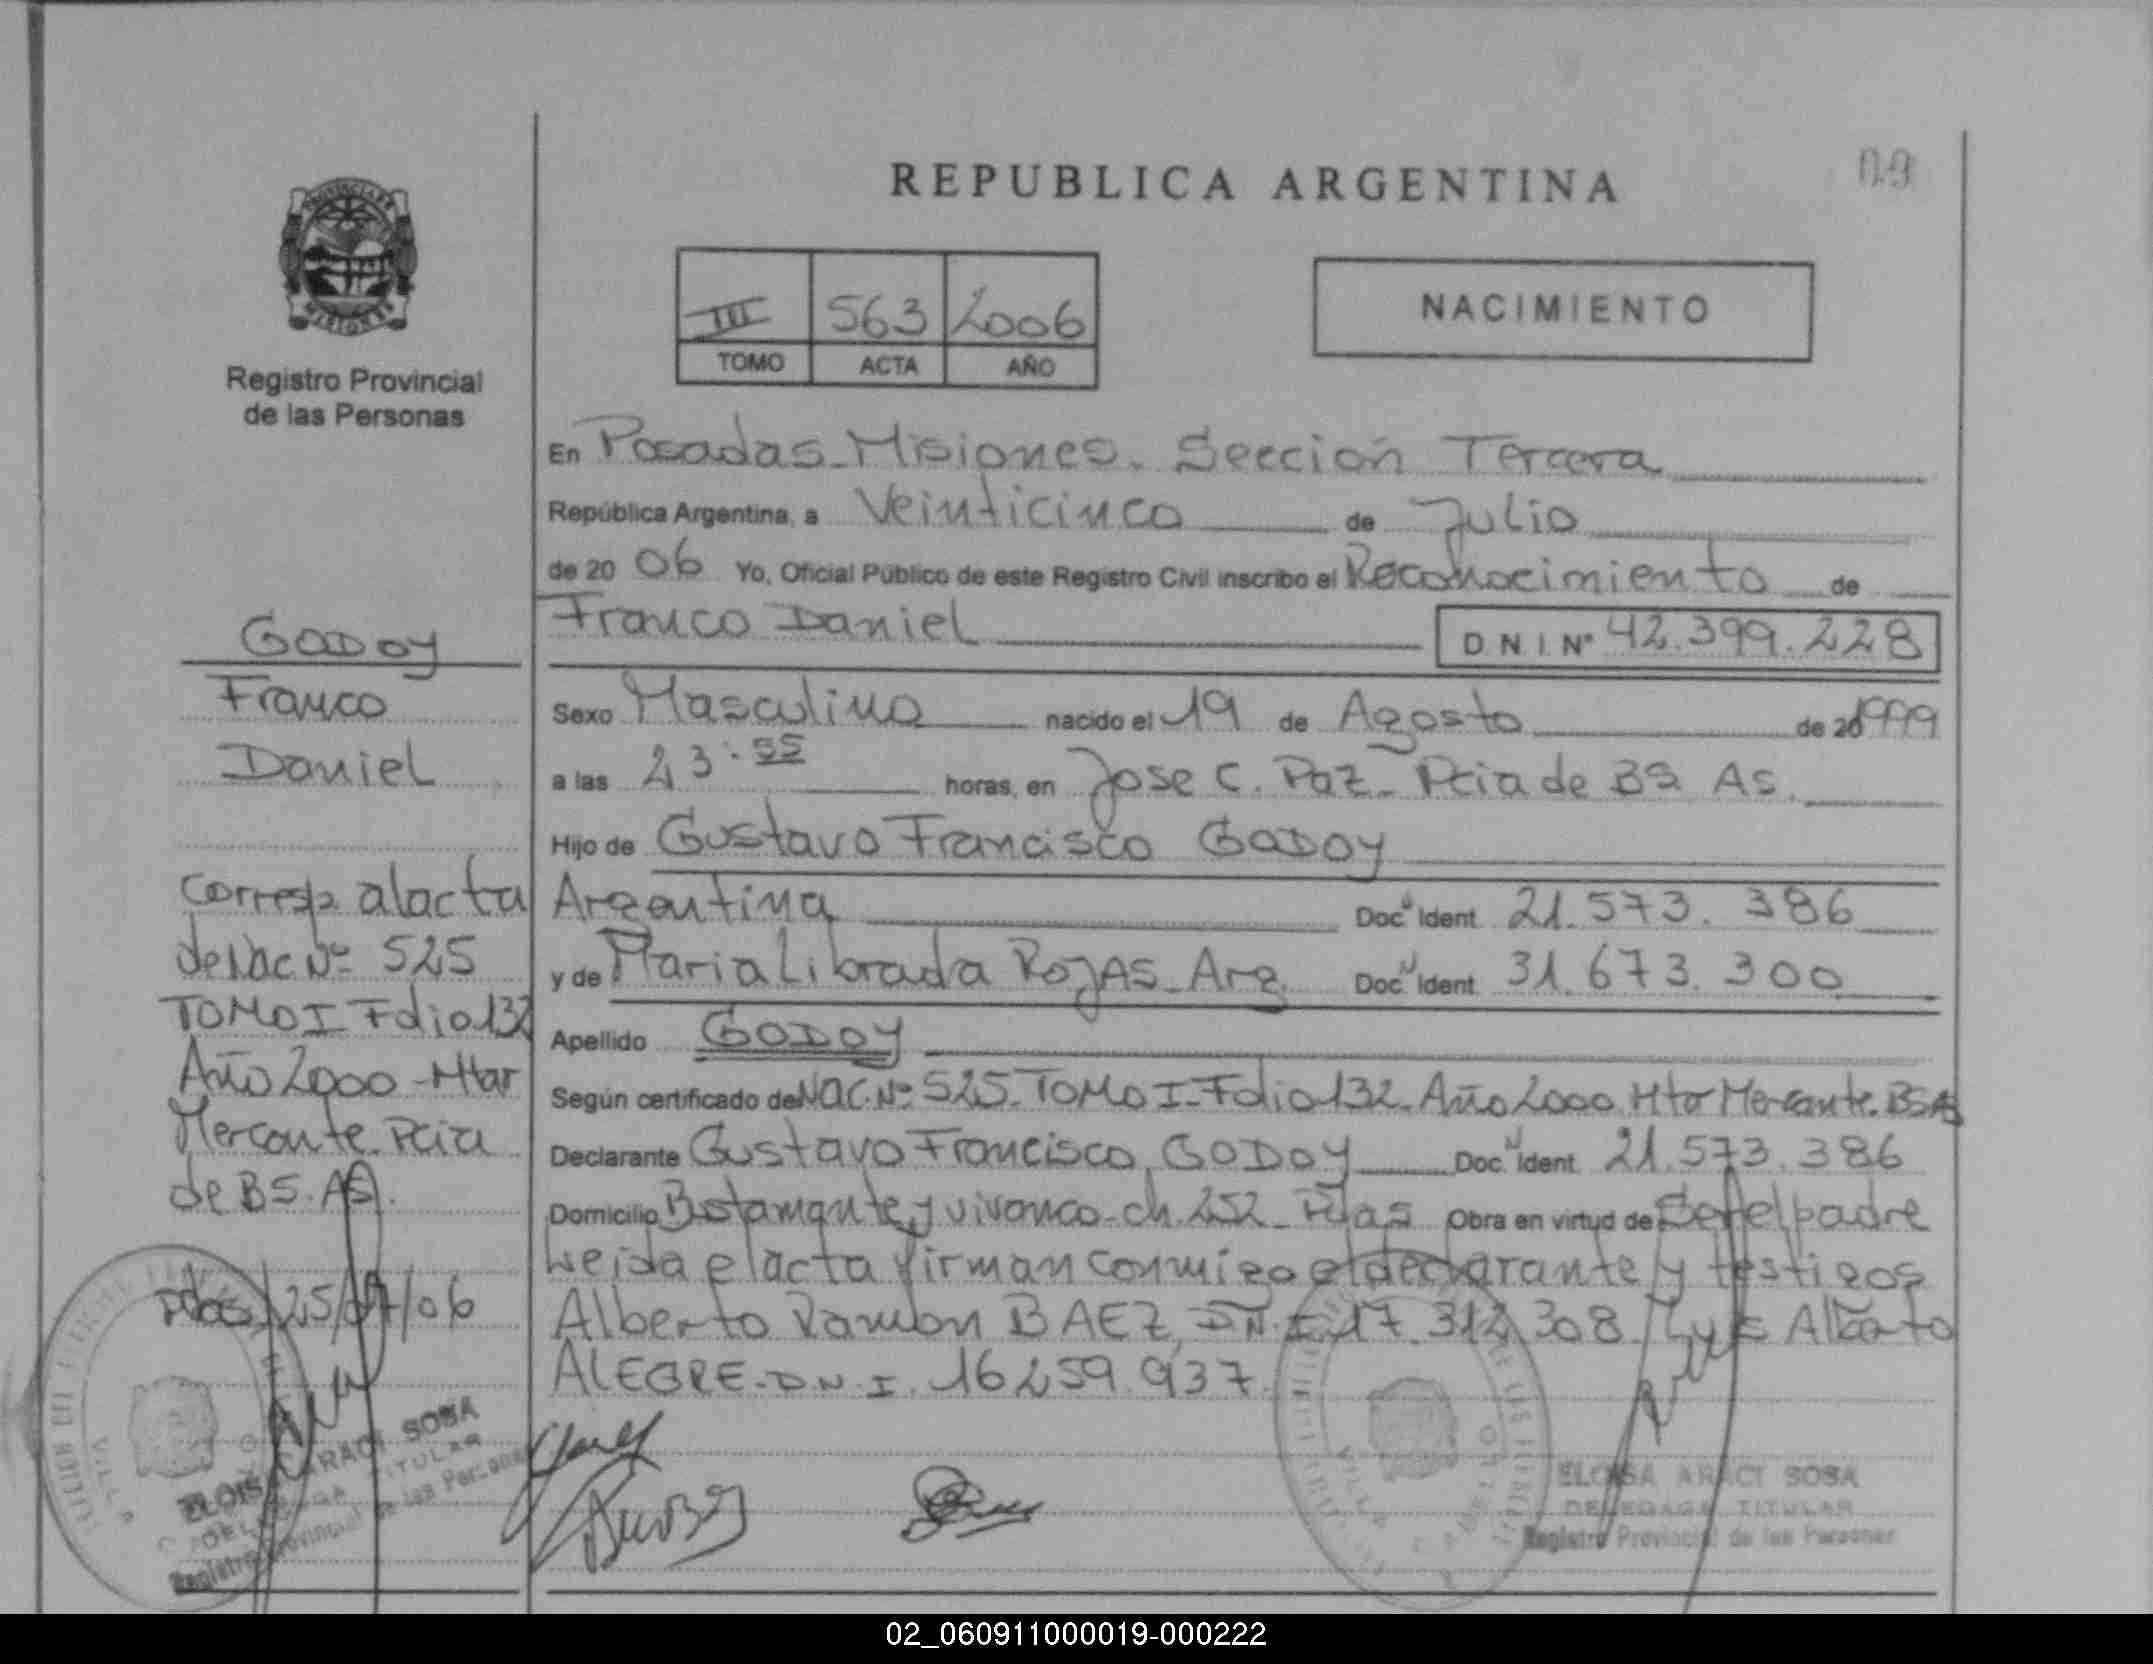 REPUBLICA ARGENTINA
III 563 2006
TOMO ACTA AÑO
NACIMIENTO
Registro Provincial
de las Personas
En Posadas-Misiones. Sección Tercera
República Argentina, a Veinticinco de Julio
de 20 06 Yo, Oficial Público de este Registro Civil inscribo el Reconocimiento de
Franco Daniel D N I Nº 42.399.228
Sexo Masculino nacido el 19 de Agosto de 1999
a las 23:55 horas, en Jose C. Paz- Pcia de BS AS.
Hijo de Gustavo Francisco GODOY
Argentina Docº Ident 21.573.386
y de Maria Librada ROJAS-Arg. Doc Ident 31.673.300
Apellido GODOY
Según certificado de NAC.Nº 525-TOMO I-Folio 132-Año 2000 Mtar Mercante.BSAS
Declarante Gustavo Francisco GODOY Doc Ident 21.573.386
Domicilio Bustamante y vivanco-ch.252- Obra en virtud de Ser el padre
Leida el acta firman conmigo el declarante y testigos
Alberto Ramon BAEZ, D.N.I. 17.312.308 / Luis Alberto
ALEGRE-D.N.I. 16.259.937
GODOY
Franco
Daniel
Corresp al acta
de Nac Nº 525
TOMO I Folio 132
Año 2000-Mtar
Mercante. Pcia
de BS.AS.
Pdas, 25/07/06
ELOISA ARACI SOSA
DELEGADA TITULAR
Registro Provincial de las Personas
ELOISA ARACI SOSA
DELEGADA TITULAR
Registro Provincial de las Personas
02_060911000019-000222